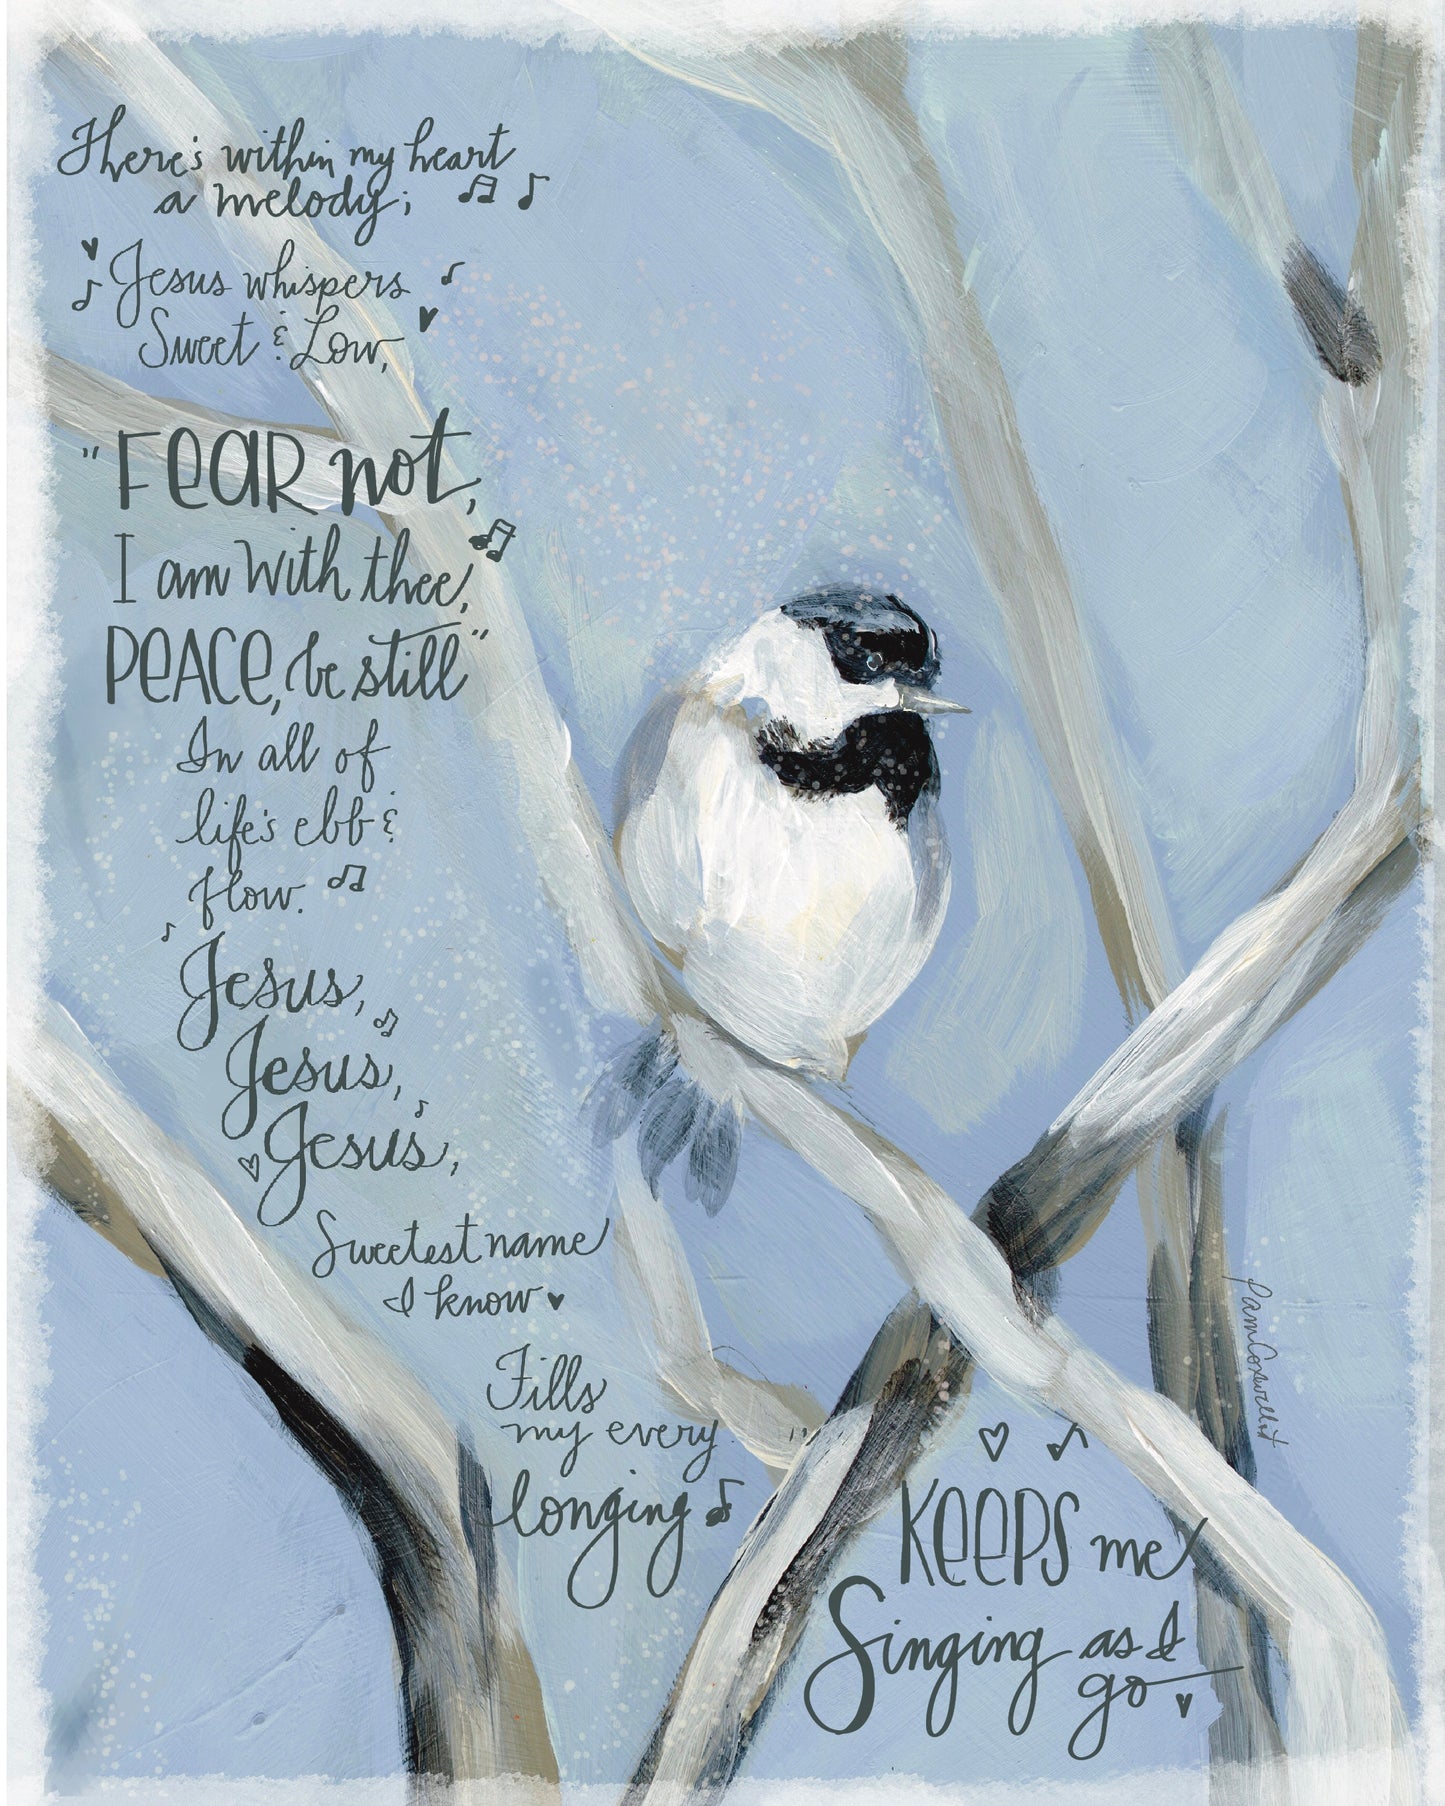 There's within my heart
a melody;
Jesus whispers
Sweet & Low,
"Fear not,
I am with thee,
Peace, be still"
In all of
life's ebb &
flow.
Jesus,
Jesus,
Jesus,
Sweetest name
I know
Fills
my every
longing
Keeps me
Singing as I
go
Pam Coxwell